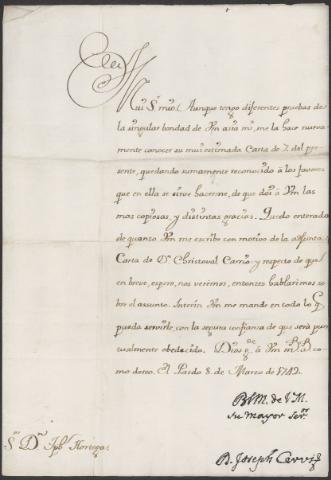 Mui S.r mio. Aunque tengo diferentes pruebas de
la singular bondad de Vm acia mi, me la hace nueva
mente conocer su mui estimada Carta de 7. del pre
sente, quedando sumamente reconocido à los favores
que en ella se sirve hacerme, de que doi à Vm las
mas copiosas, y distintas gracias. Quedo enterado
de quanto Vm me escribe con motivo de la adjunta
Carta de D.n Christoval Carrio, y respecto de que
en breve, espero, nos veremos, entonces hablaremos so
bre el assunto. Interin Vm me mande en todo lo q.
pueda servirle, con la segura confianza de que será pun
tualmente obedecido. Dios g.e à Vm m.s a.s co
mo deseo. El Pardo 8. de Marzo de 1742.
BLM. de VM.
su mayor ser.r
D. Joseph
S.r D.n Noriega